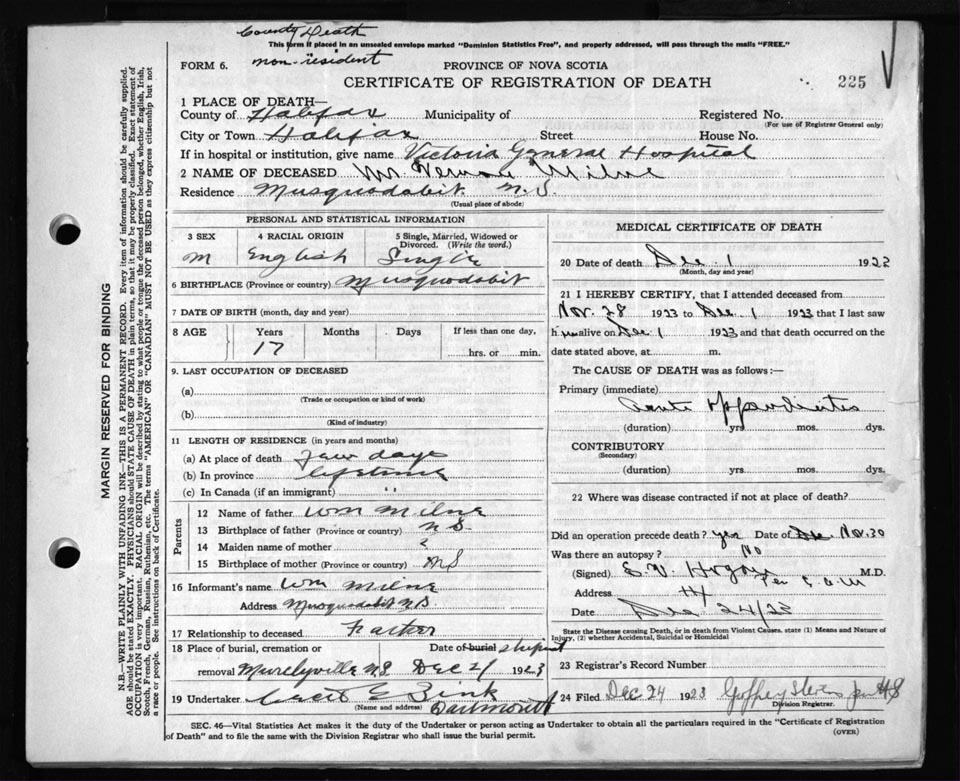 County Death
This form if placed in an unsealed envelope marked "Dominion Statistics Free", and properly addressed, will pass through the mails "FREE."
FORM 6. non-resident PROVINCE OF NOVA SCOTIA
CERTIFICATE OF REGISTRATION OF DEATH 225
1 PLACE OF DEATH—
County of Halifax Municipality of Registered No.
(For use of Registrar General only)
City or Town Halifax Street House No.
If in hospital or institution, give name Victoria General Hospital
2 NAME OF DECEASED Mr Vernon Milne
Residence Musquodobit N.S.
(Usual place of abode)
PERSONAL AND STATISTICAL INFORMATION
3 SEX 4 RACIAL ORIGIN 5 Single, Married, Widowed or Divorced. (Write the word.)
M English Single
6 BIRTHPLACE (Province or country) Musquodobit
7 DATE OF BIRTH (month, day and year)
8 AGE Years Months Days If less than one day,
17 hrs. or min.
9. LAST OCCUPATION OF DECEASED
(a)
(Trade or occupation or kind of work)
(b)
(Kind of industry)
11 LENGTH OF RESIDENCE (in years and months)
(a) At place of death few days
(b) In province lifetime
(c) In Canada (if an immigrant) "
Parents
12 Name of father Wm Milne
13 Birthplace of father (Province or country) N S.
14 Maiden name of mother ?
15 Birthplace of mother (Province or country) NS
16 Informant's name Wm Milne
Address Musquodobit N.S.
17 Relationship to deceased Farther
18 Place of burial, cremation or Date of burial shipment
removal N.S. Dec 21 1923
19 Undertaker E Zink
(Name and address) Dartmouth
MEDICAL CERTIFICATE OF DEATH
20 Date of death Dec. 1 1923
(Month, day and year)
21 I HEREBY CERTIFY, that I attended deceased from
Nov. 28 1923 to Dec. 1 1923 that I last saw
him alive on Dec 1 1923 and that death occurred on the
date stated above, at m.
The CAUSE OF DEATH was as follows:—
Primary (immediate)
Acute Appendicitis
(duration) yrs. mos. dys.
CONTRIBUTORY
(Secondary)
(duration) yrs. mos. dys.
22 Where was disease contracted if not at place of death?
Did an operation precede death? yes Date of Dec. Nov. 30
Was there an autopsy? No
(Signed) E. V. Hogan M.D.
Address
Date Dec 24/23
State the Disease causing Death, or in death from Violent Causes, state (1) Means and Nature of
Injury, (2) whether Accidental, Suicidal or Homicidal
23 Registrar's Record Number
24 Filed Dec 24 1923
Division Registrar.
SEC. 46—Vital Statistics Act makes it the duty of the Undertaker or person acting as Undertaker to obtain all the particulars required in the "Certificate of Registration
of Death" and to file the same with the Division Registrar who shall issue the burial permit.
(OVER)
MARGIN RESERVED FOR BINDING
N.B.—WRITE PLAINLY WITH UNFADING INK—THIS IS A PERMANENT RECORD. Every item of information should be carefully supplied.
AGE should be stated EXACTLY. PHYSICIANS should STATE CAUSE OF DEATH in plain terms, so that it may be properly classified. Exact statement of
OCCUPATION is very important. RACIAL ORIGIN will be described by stating to what people or tongue the deceased person belonged, whether English, Irish,
Scotch, French, German, Russian, Ruthenian, etc. The terms "AMERICAN" OR "CANADIAN" MUST NOT BE USED as they express citizenship but not
a race or people. See instructions on back of Certificate.